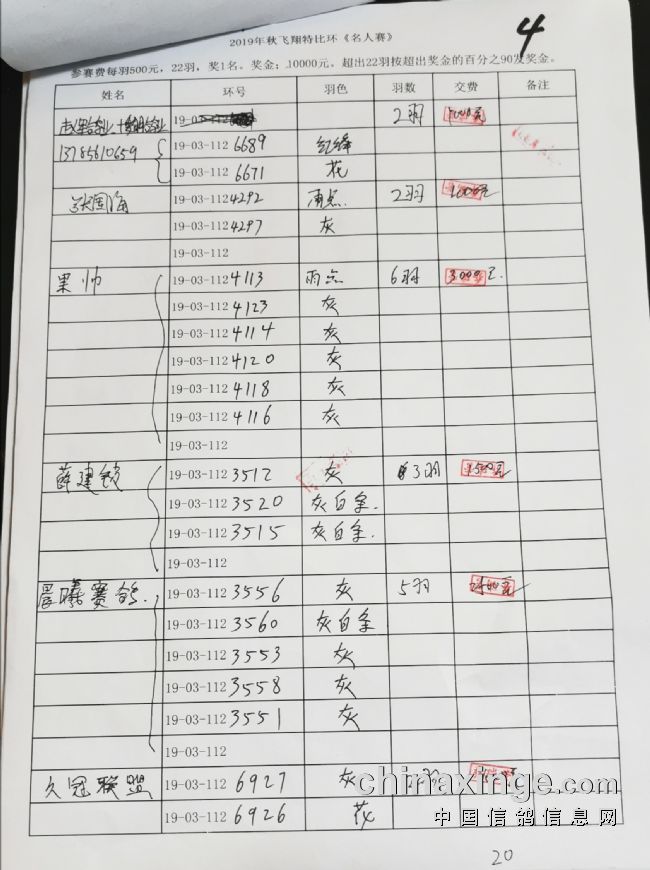 4
2019年秋飞翔特比环《名人赛》
参赛费每羽500元，22羽，奖1名。奖金：10000元。超出22羽按超出奖金的百分之90发奖金。
姓名 环号 羽色 羽数 交费 备注
19-03-112 2羽 1000元
13785610659 19-03-112 6689 红绛
19-03-112 6671 花
张国海 19-03-112 4292 雨点. 2羽 1000元
19-03-112 4297 灰
19-03-112
果帅 19-03-112 4113 雨点 6羽 3000元.
19-03-112 4123 灰
19-03-112 4114 灰
19-03-112 4120 灰
19-03-112 4118 灰
19-03-112 4116 灰
19-03-112
薛建 19-03-112 3512 灰 3羽 1500元
19-03-112 3520 灰白条.
19-03-112 3515 灰白条.
19-03-112
晨曦赛鸽. 19-03-112 3556 灰 5羽
19-03-112 3560 灰白条
19-03-112 3553 灰
19-03-112 3558 灰
19-03-112 3551 灰
19-03-112
久冠联盟 19-03-112 6927 灰
19-03-112 6926 花
chinaxinge.com
中国信鸽信息网
20